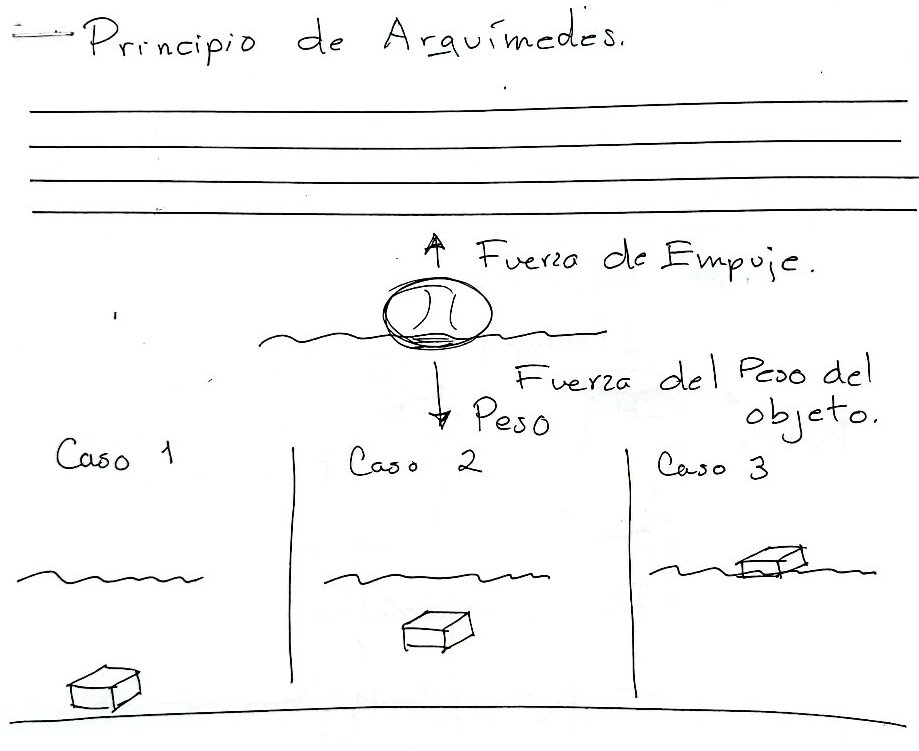 Principio de Arquímedes.
Fuerza de Empuje.
Fuerza del Peso del
objeto.
Peso
Caso 1
Caso 2
Caso 3